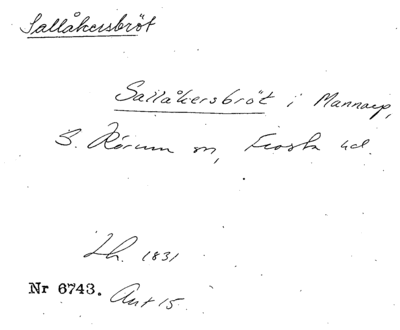 Sallåkersbröt
Sallåkersbröt i Mannarp,
S. Rörum sn, Frosta hd.
Lh. 1831
Nr 6743. Avt 15